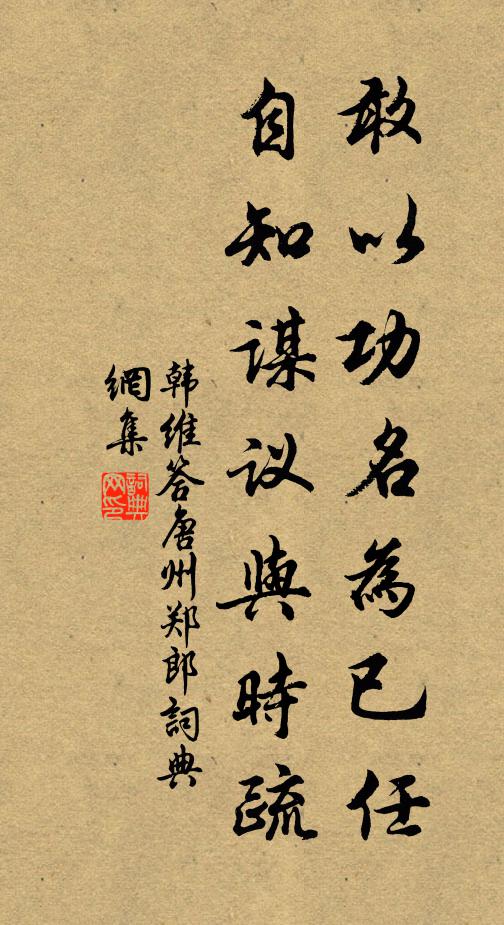 敢以功名為已任
自知謀议與時疏
韩维答唐州郑郎詞典
網集
詞典網印